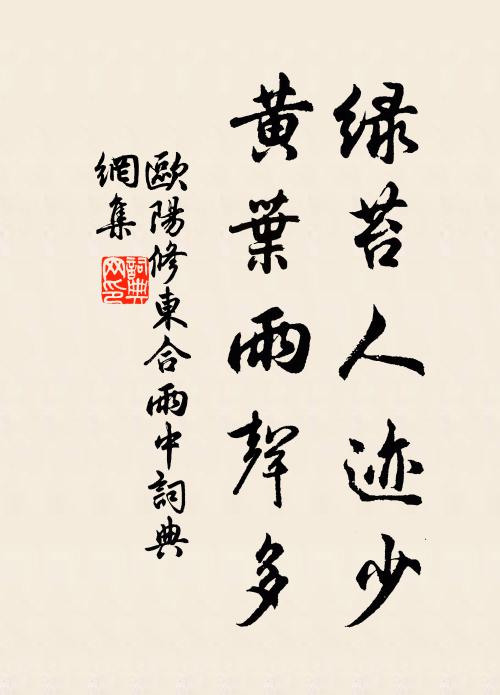 绿苔人迹少
黄葉雨聲多
歐陽修東合雨中詞典
網集
詞典
网印